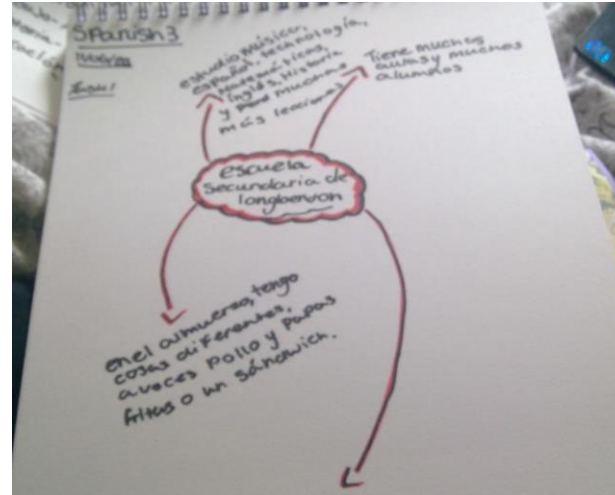 Spanish 3
estudio música,
español, tecnología,
matemáticas,
inglés, historia
y pero muchas
más lecciones
Tiene muchos
aulas y muchos
alumnos
escuela
secundaria de
longbenton
en el almuerzo, tengo
cosas diferentes,
a veces Pollo y papas
fritas o un sándwich.